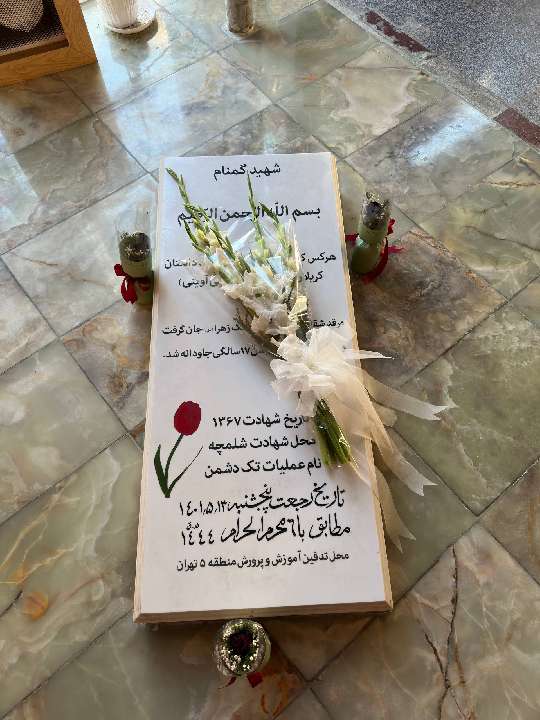 شهید گمنام
بسم الله الرحمن الرحیم
هرکس داستان
کربلا آوینی)
مرقد شق زهرا جان گرفت
سن ۱۷ سالگی جاودانه شد.
تاریخ شهادت ۱۳۶۷
محل شهادت شلمچه
نام عملیات تک دشمن
تاریخ رجعت پنجشنبه ۱۴۰۱،۵،۱۳
مطابق با ۶ محرم الحرام ۱۴۴۴
محل تدفین آموزش و پرورش منطقه ۵ تهران